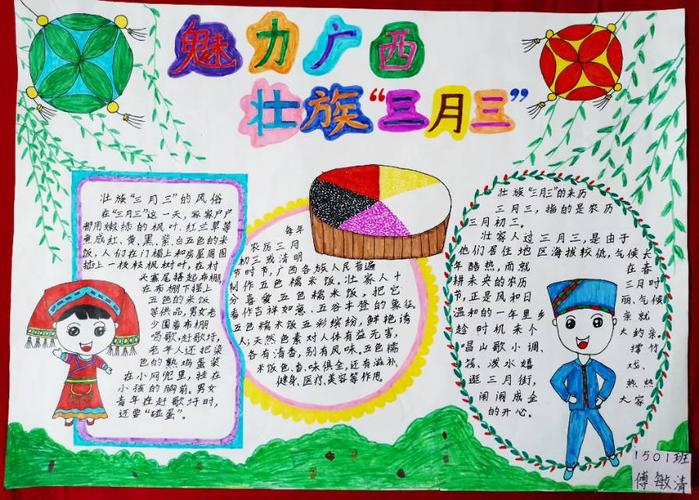 魅力广西
壮族“三月三”
壮族“三月三”的风俗
在“三月三”这一天，家家户户
都用嫩绿的枫叶、红兰草等
煮成红、黄、黑、紫、白五色的米
饭，人们在门楣上和房屋周围
插上一枝枝枫树叶，在村
寨尾搭起布棚，
在布棚下摆上
五色的米饭
等供品，男女老
少围着布棚
唱歌，赶歌圩，
老年人还把染
色的熟鸡蛋装
在小网兜里，挂在
小孩的胸前。男女
青年在赶歌圩时，
还要“碰蛋”。
每年
农历三月
初三或清明
节时节，广西各族人民普遍
制作五色糯米饭，壮家人十
分喜爱五色糯米饭，把它
看作吉祥如意、五谷丰登的象征。
五色糯米饭五彩缤纷，鲜艳诱
人；天然色素对人体有益无害，
各有清香，别有风味。五色糯
米饭色、香、味俱全，还有滋补、
健身、医疗、美容等作用。
壮族“三月三”的来历
三月三，指的是农历
三月初三。
壮家人过三月三，是由于
他们居住地区海拔较低，气候长
年酷热，而就在春
耕未央的农历三月时
节，正是风和日丽、气候
温和的一年里亲
趁时机来个大约
唱山歌小调、
泼水嬉戏，
逛三月街，热热
闹闹成全大家
的开心。
1501班
傅敏清